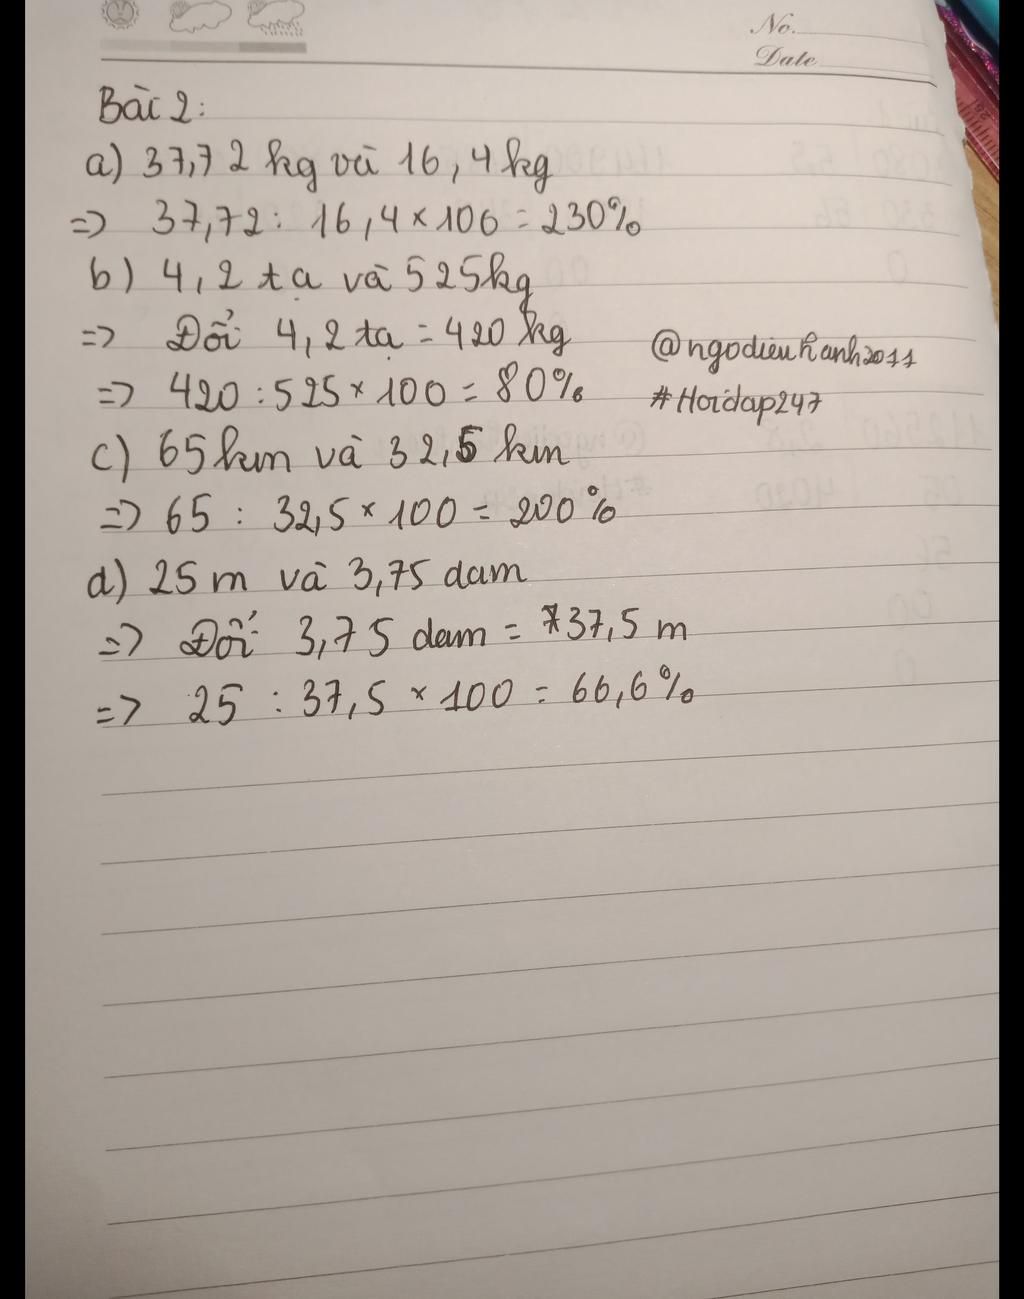 No.
Date
Bài 2:
a) 37,72 kg và 16,4 kg
=> 37,72 : 16,4 × 100 = 230%
b) 4,2 tạ và 525 kg
=> Đổi 4,2 tạ = 420 kg
@ngodieuhanh2011
=> 420 : 525 × 100 = 80%
#Hoidap247
c) 65 km và 32,5 km
=> 65 : 32,5 × 100 = 200%
d) 25 m và 3,75 dam
=> Đổi 3,75 dam = 37,5 m
=> 25 : 37,5 × 100 = 66,6%